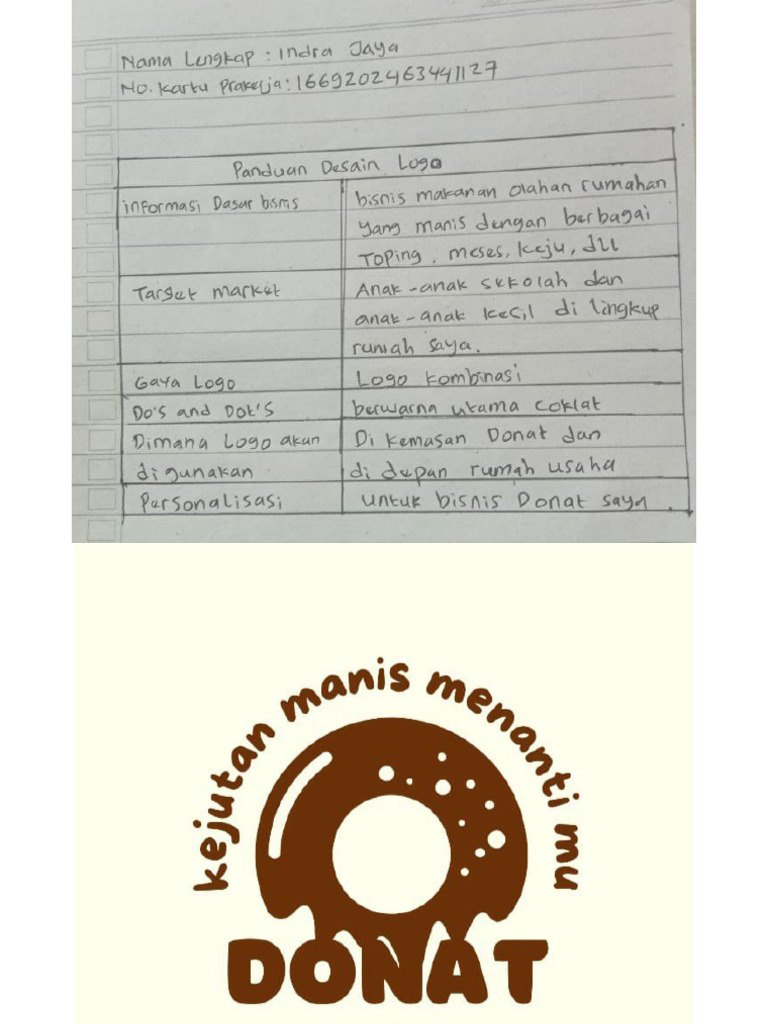 Nama Lengkap : Indra Jaya
No. Kartu Prakerja : 1669202463441127
Panduan Desain Logo
informasi Dasar bisnis
bisnis makanan olahan rumahan
yang manis dengan berbagai
Toping, meses, keju, dll
Target market
Anak-anak sekolah dan
anak-anak kecil di lingkup
rumah saya.
Gaya Logo
Logo kombinasi
Do's and Dot's
berwarna utama coklat
Dimana Logo akan
di gunakan
Di kemasan Donat dan
di depan rumah usaha
Personalisasi
untuk bisnis Donat saya.
kejutan manis menanti mu
DONAT